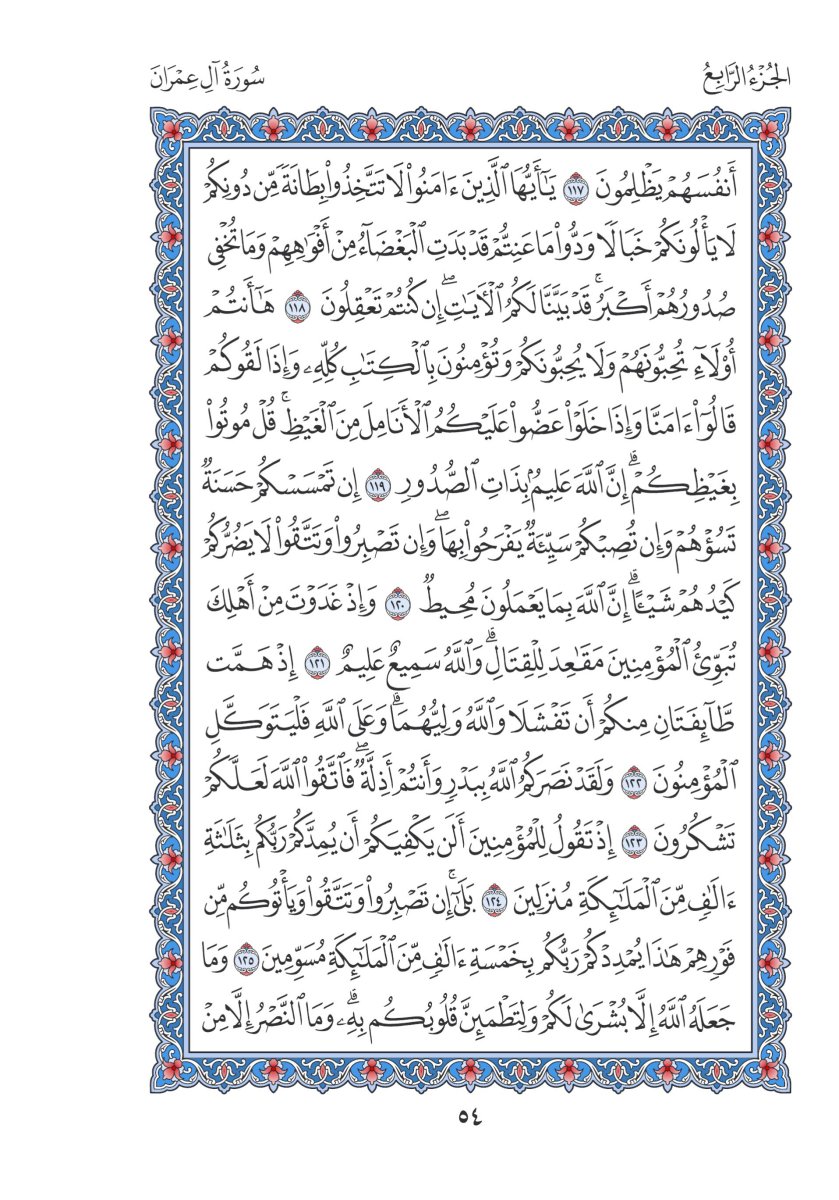 الجُزْءُ الرَّابِعُ
سُورَةُ آلِ عِمْرَانَ
أَنفُسَهُمْ يَظْلِمُونَ ١١٧ يَٰٓأَيُّهَا ٱلَّذِينَ ءَامَنُوا۟ لَا تَتَّخِذُوا۟ بِطَانَةً مِّن دُونِكُمْ
لَا يَأْلُونَكُمْ خَبَالًا وَدُّوا۟ مَا عَنِتُّمْ قَدْ بَدَتِ ٱلْبَغْضَآءُ مِنْ أَفْوَٰهِهِمْ وَمَا تُخْفِى
صُدُورُهُمْ أَكْبَرُ ۚ قَدْ بَيَّنَّا لَكُمُ ٱلْءَايَٰتِ ۖ إِن كُنتُمْ تَعْقِلُونَ ١١٨ هَٰٓأَنتُمْ
أُو۟لَآءِ تُحِبُّونَهُمْ وَلَا يُحِبُّونَكُمْ وَتُؤْمِنُونَ بِٱلْكِتَٰبِ كُلِّهِۦ وَإِذَا لَقُوكُمْ
قَالُوٓا۟ ءَامَنَّا وَإِذَا خَلَوْا۟ عَضُّوا۟ عَلَيْكُمُ ٱلْأَنَامِلَ مِنَ ٱلْغَيْظِ ۚ قُلْ مُوتُوا۟
بِغَيْظِكُمْ ۗ إِنَّ ٱللَّهَ عَلِيمٌۢ بِذَاتِ ٱلصُّدُورِ ١١٩ إِن تَمْسَسْكُمْ حَسَنَةٌ
تَسُؤْهُمْ وَإِن تُصِبْكُمْ سَيِّئَةٌ يَفْرَحُوا۟ بِهَا ۖ وَإِن تَصْبِرُوا۟ وَتَتَّقُوا۟ لَا يَضُرُّكُمْ
كَيْدُهُمْ شَيْـًٔا ۗ إِنَّ ٱللَّهَ بِمَا يَعْمَلُونَ مُحِيطٌ ١٢٠ وَإِذْ غَدَوْتَ مِنْ أَهْلِكَ
تُبَوِّئُ ٱلْمُؤْمِنِينَ مَقَٰعِدَ لِلْقِتَالِ ۗ وَٱللَّهُ سَمِيعٌ عَلِيمٌ ١٢١ إِذْ هَمَّت
طَّآئِفَتَانِ مِنكُمْ أَن تَفْشَلَا وَٱللَّهُ وَلِيُّهُمَا ۗ وَعَلَى ٱللَّهِ فَلْيَتَوَكَّلِ
ٱلْمُؤْمِنُونَ ١٢٢ وَلَقَدْ نَصَرَكُمُ ٱللَّهُ بِبَدْرٍ وَأَنتُمْ أَذِلَّةٌ ۖ فَٱتَّقُوا۟ ٱللَّهَ لَعَلَّكُمْ
تَشْكُرُونَ ١٢٣ إِذْ تَقُولُ لِلْمُؤْمِنِينَ أَلَن يَكْفِيَكُمْ أَن يُمِدَّكُمْ رَبُّكُم بِثَلَٰثَةِ
ءَالَٰفٍ مِّنَ ٱلْمَلَٰٓئِكَةِ مُنزَلِينَ ١٢٤ بَلَىٰٓ ۚ إِن تَصْبِرُوا۟ وَتَتَّقُوا۟ وَيَأْتُوكُم مِّن
فَوْرِهِمْ هَٰذَا يُمْدِدْكُمْ رَبُّكُم بِخَمْسَةِ ءَالَٰفٍ مِّنَ ٱلْمَلَٰٓئِكَةِ مُسَوِّمِينَ ١٢٥ وَمَا
جَعَلَهُ ٱللَّهُ إِلَّا بُشْرَىٰ لَكُمْ وَلِتَطْمَئِنَّ قُلُوبُكُم بِهِۦ ۗ وَمَا ٱلنَّصْرُ إِلَّا مِنْ
٥٤